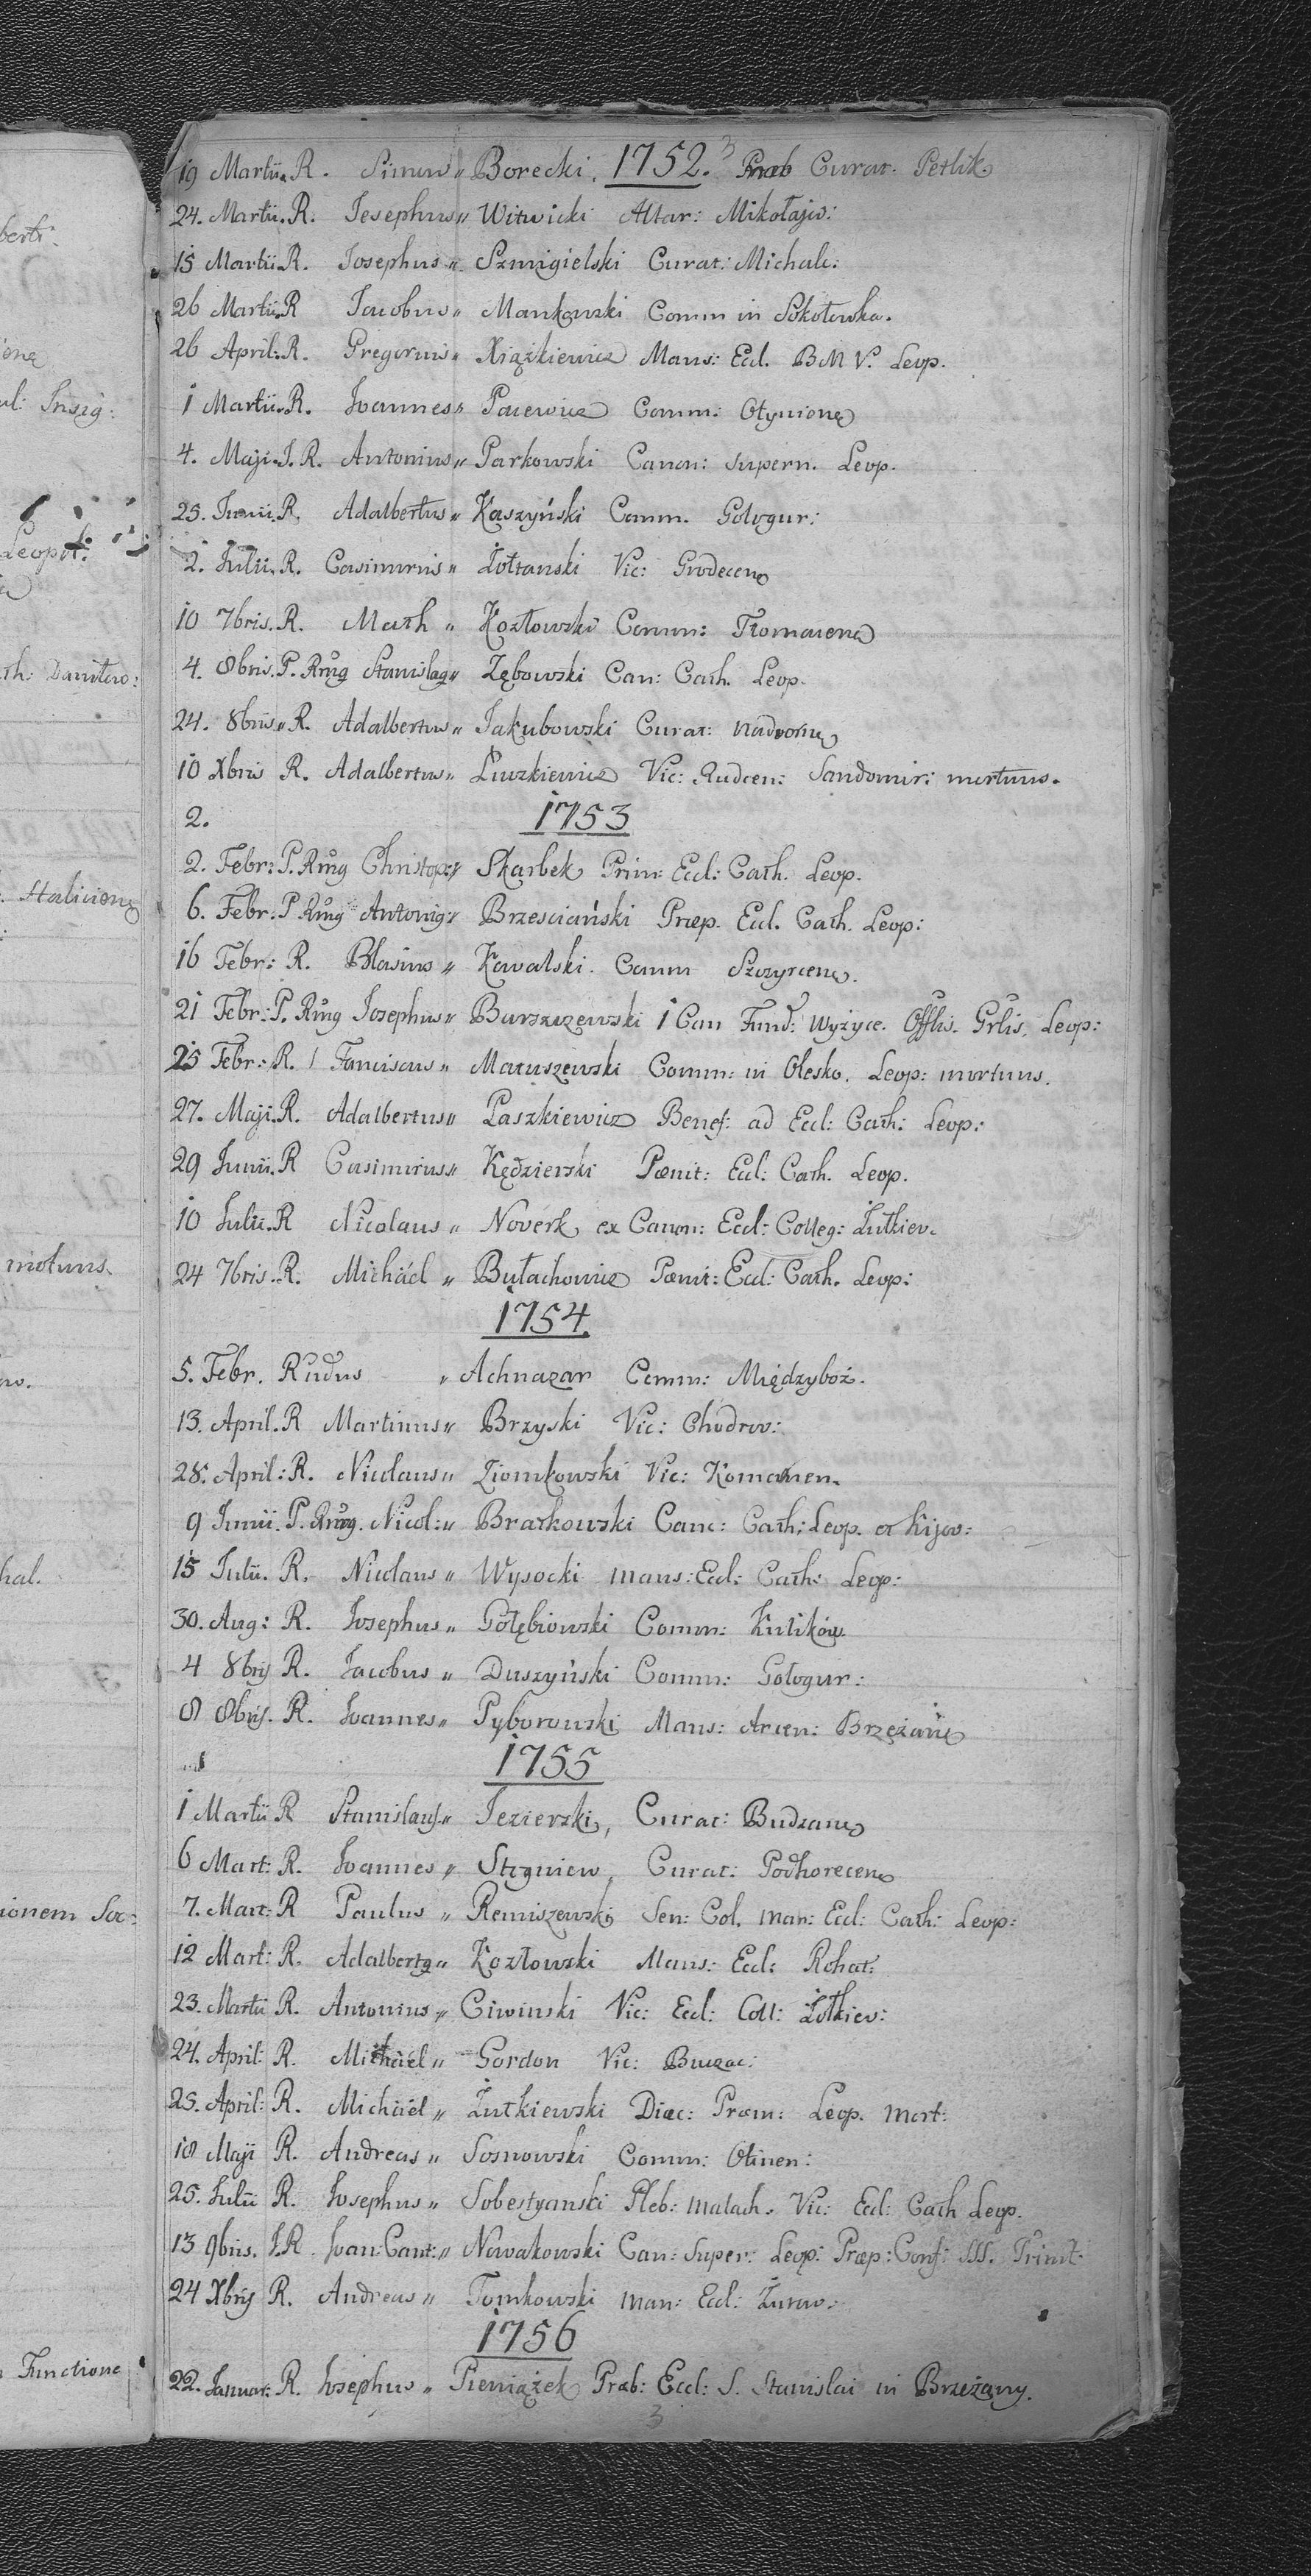 19 Martii. R. Simon " Borecki. 1752. 3 Præb Curat. Petlik
24. Martii. R. Josephus " Witwicki Altar: Mikołajio:
15 Martii. R. Josephus " Szmigielski Curat: Michalc:
26 Martii. R Jacobus " Mankowski Comm in Sokołowka.
26 April: R. Gregorius " Xiążkiewicz Mans: Eccl. BMV. Leop.
1 Martii. R. Joannes " Pacewicz Comm: Otynione
4. Maji. J. R. Antonius " Parkowski Canon: supern. Leop.
25. Junii. R. Adalbertus " Kaszyński Comm. Gologur:
2. Julii. R. Casimirus " Żołtanski Vic: Grodecen
10 7bris. R. Math " Kozłowski Comm: Tłomacen
4. 8bris. P. Rmg Stanislag " Zębowski Can: Cath. Leop.
24. 8bris " R. Adalbertus " Jakubowski Curat: Nadvorn
10 Xbris R. Adalbertus " Luszkiewicz Vic: Rudcen: Sandomir: mortuus.
2. 1753
2. Febr: P. Rmg Christop: " Skarbek Prim: Eccl: Cath. Leop.
6. Febr. P Rmg Antonig: " Brzesciański Præp. Eccl. Cath. Leop:
16 Febr: R. Blasius " Kowalski. Comm Szczyrcen.
21 Febr: P. Rmg Josephus " Barszczewski 1 Can Fund: Wyżyce. Offlis. Grlis. Leop:
25 Febr: R. Franciscus " Matuszewski Comm: in Olesko. Leop: mortuus.
27. Maji. R. Adalbertus " Laszkiewicz Benef: ad Eccl: Cath: Leop:
29 Junii. R Casimirus " Kędzierski Pænit: Eccl: Cath. Leop.
10 Julii. R Nicolaus " Noverk ex Canon: Eccl: Colleg: Żułkiev.
24 7bris. R. Michäel " Bułachowicz Pænit: Eccl: Cath. Leop:
1754.
5. Febr. Rudus " Achnazar Comm: Międzyboż.
13. April. R Martinus " Brzyski Vic: Chodrov:
28. April: R. Nicolaus " Ziomkowski Vic: Komarnen.
9 Junii. P. Rmg. Nicol: " Bratkowski Canc: Cath: Leop. et Kijov:
15 Julii. R. Nicolaus " Wysocki Mans: Eccl: Cath: Leop:
30. Aug: R. Josephus " Gołębiowski Comm: Kulików.
4 8brij R. Jacobus " Duszyński Comm: Gołogur:
8 8brij. R. Joannes " Pyborowski Mans: Arcen: Brzężan
1755
1 Martii R Stanislaus " Jezierski, Curat: Budzan
6 Mart: R. Joannes " Stęgniew, Curat: Podhorecen
7. Mart: R Paulus " Remiszewski Sen: Col. Man: Eccl: Cath: Leop:
12 Mart: R. Adalbertg " Kozłowski Mans: Eccl: Rohat:
23. Martii R. Antonius " Ciwinski Vic: Eccl: Coll: Żołkiev:
24. April: R. Michäel " Gordon Vic: Buczac:
25. April: R. Michäel " Żułkiewski Diac: Præm: Leop. Mort:
18 Maji R. Andreas " Sosnowski Comm: Otinen:
25. Julii R. Josephus " Sobestyanski Pleb: Malach. Vic: Eccl: Cath Leop.
13 9bris. J. R. Joan: Cant: " Nowakowski Can: Super: Leop: Præp: Conf: SSS. Trinit.
24 Xbrij R. Andreas " Tomkowski Man: Eccl: Żuraw:
1756
22. Januar: R. Josephus " Pieniążek Præb: Eccl: S. Stanislai in Brzeżany.
3